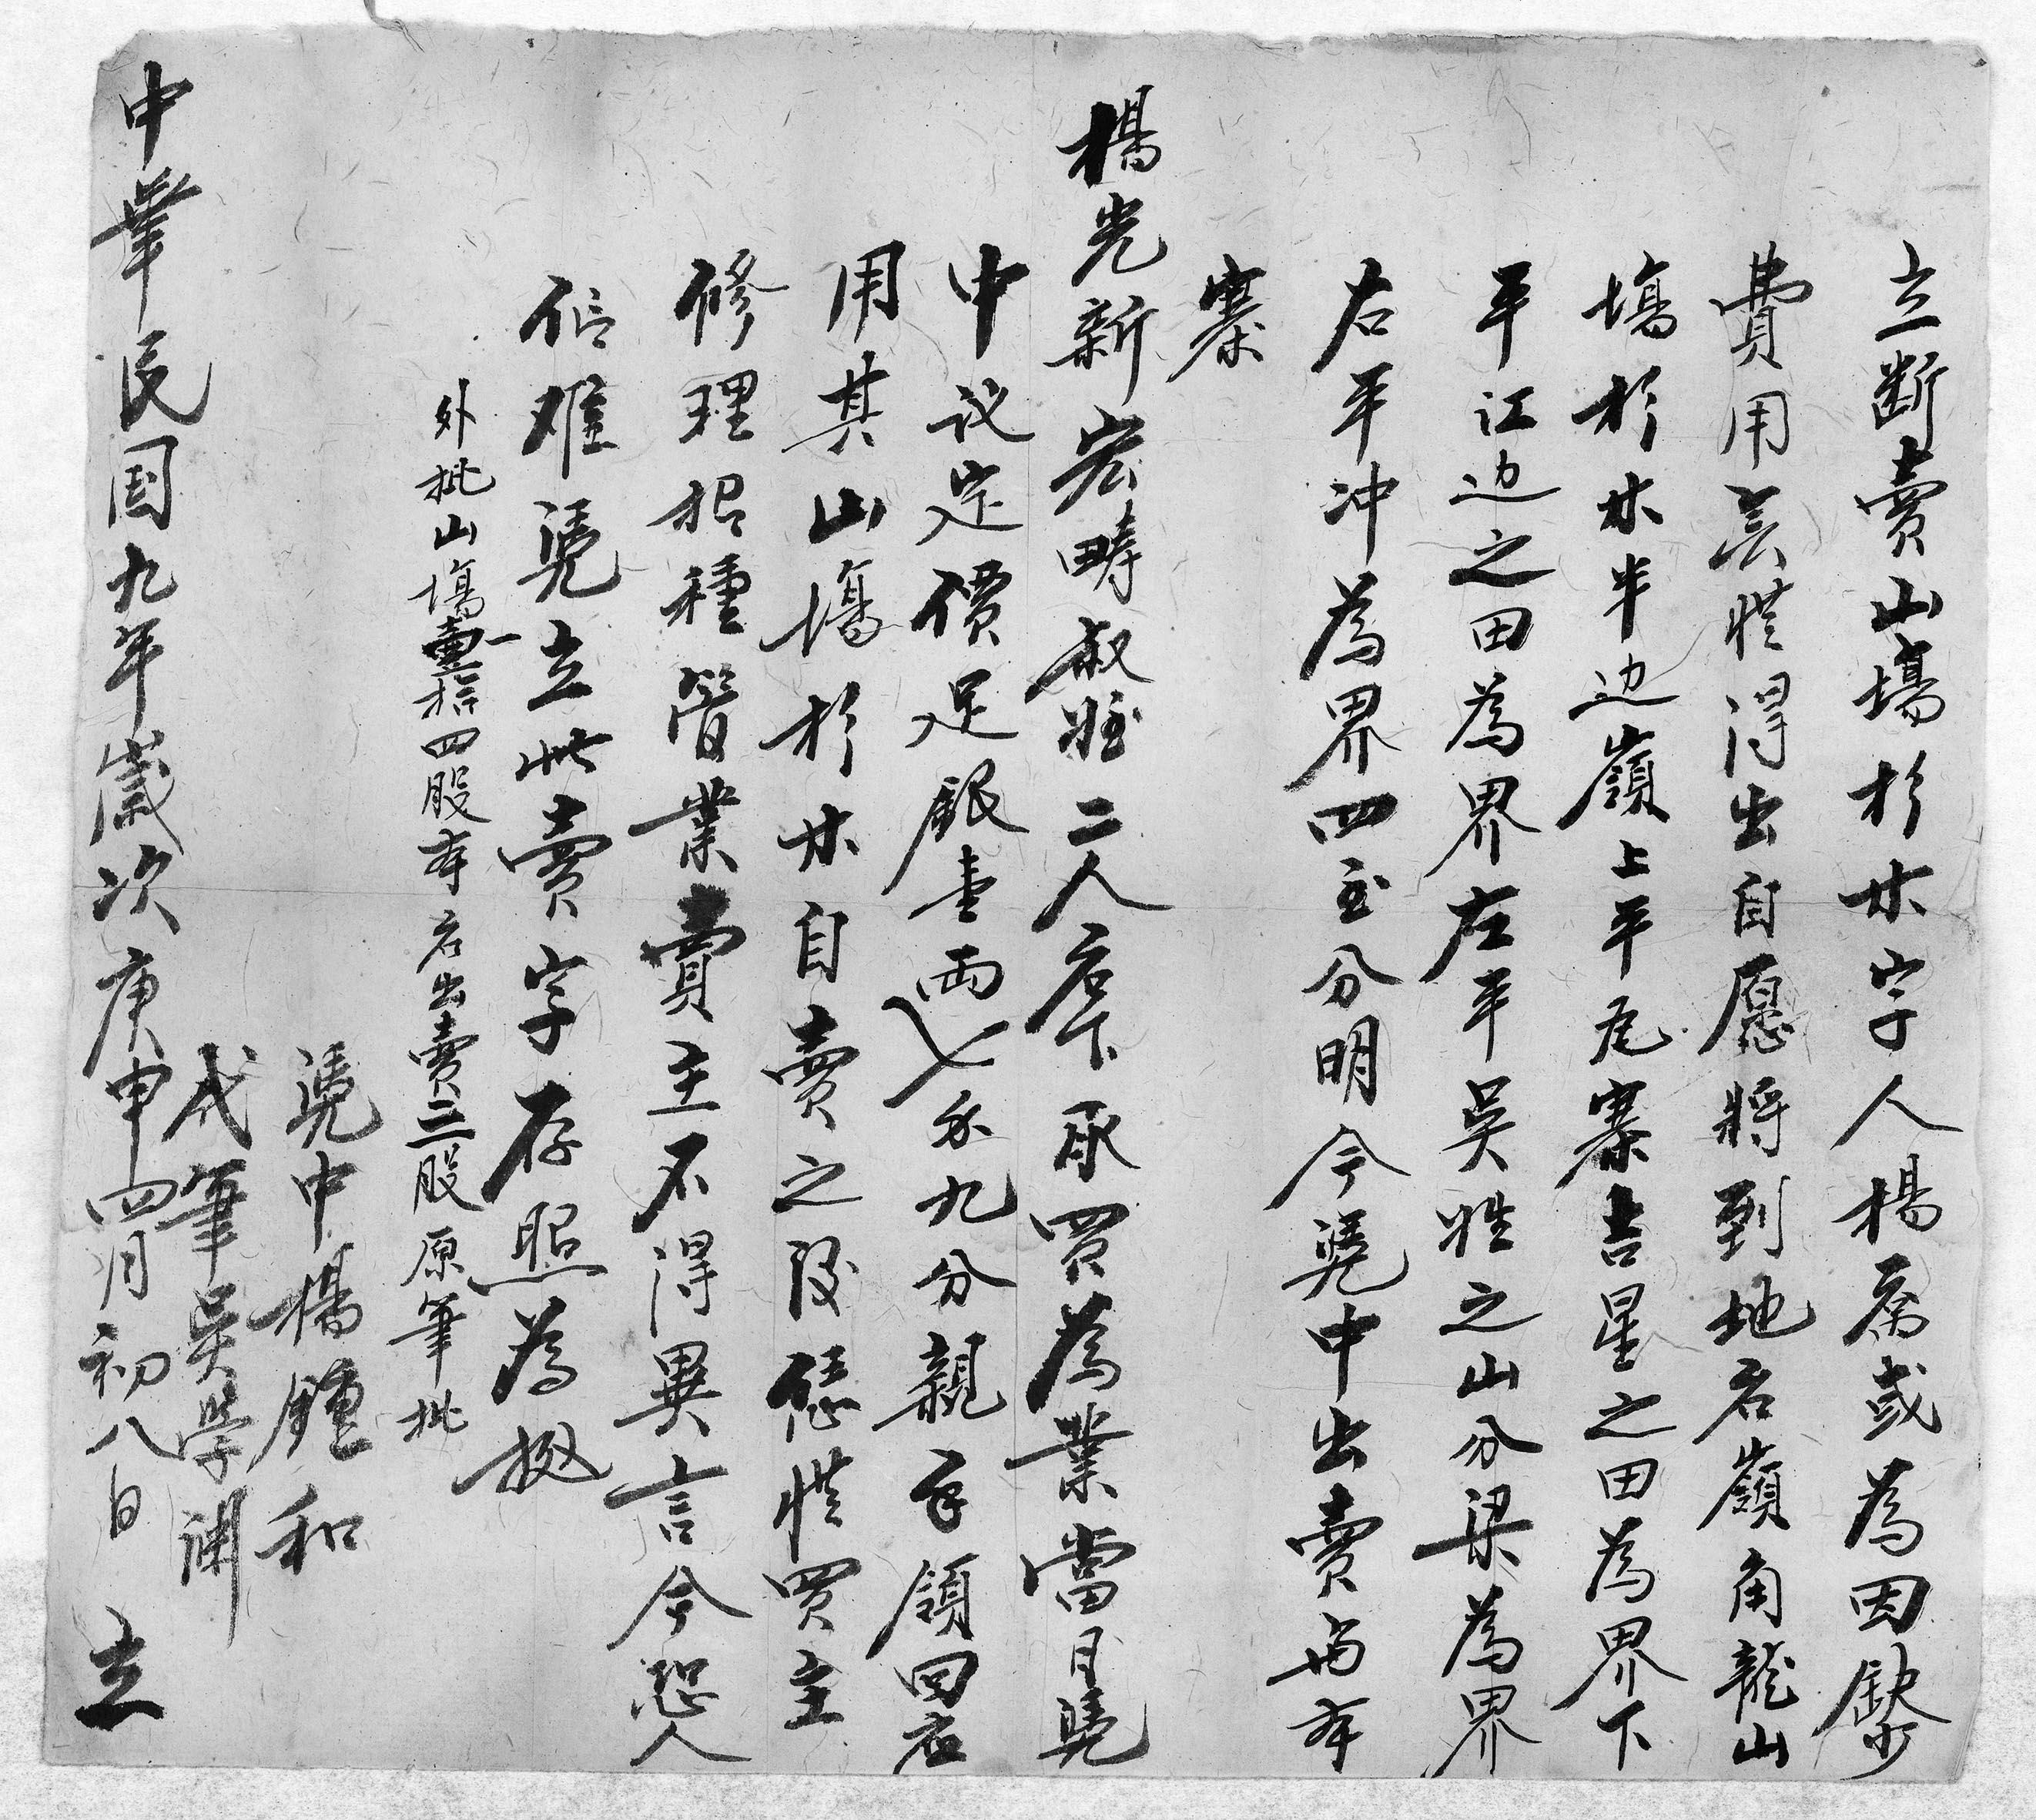 立断賣山塲杉木字人楊秀或為因缺少
費用無從得出自愿將到地名嶺角龍山
塲杉木半边嶺上平尧寨吉星之田為界下
平江边之田為界左平吴姓之山分梁為界
右平冲為界四至分明今凴中出賣与本
寨
楊光新宏疇叔姪二人名下承買為業當日凴
中议定價足銀壹両七分九分親手領回应
用其山塲杉木自賣之後恁從買主
修理招種管業賣主不得異言今恐人
信难凴立此賣字存照為据
外批山塲壹拾四股本名出賣三股原筆批
凴中楊鍾和
代筆吴學渊
中華民国九年歲次庚申四月初八日 立